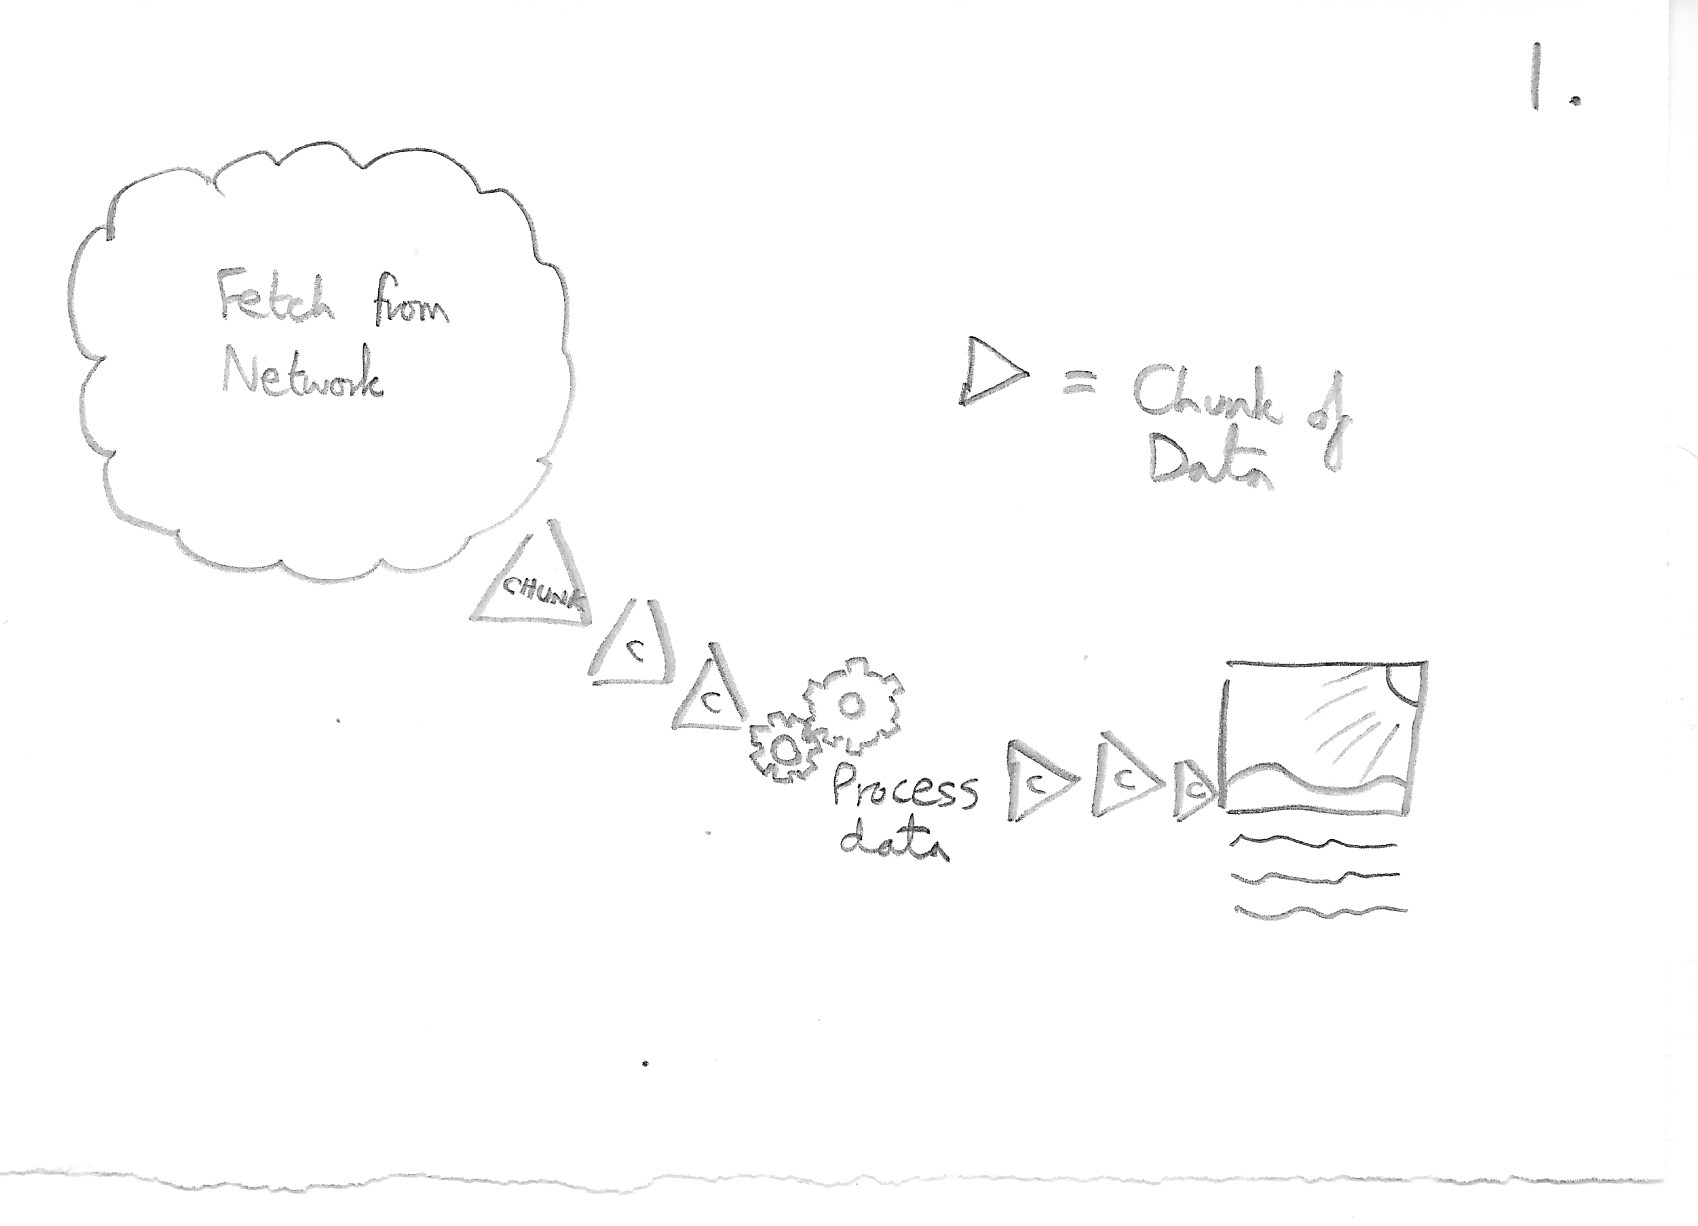 1.
Fetch from
Network
= Chunk of
Data
CHUNK
C
C
Process
data
C
C
C